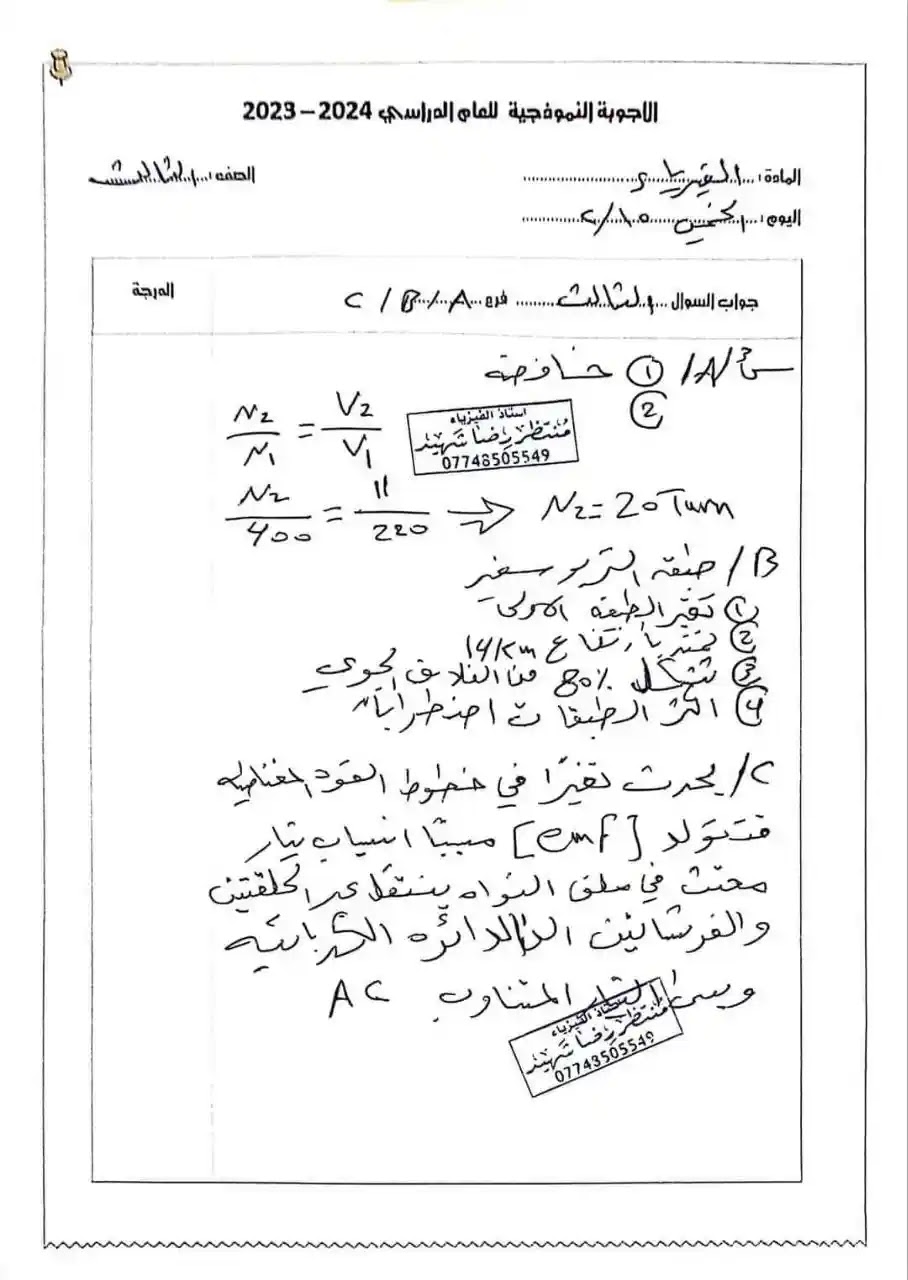 الاجوبة النموذجية للعام الدراسي 2024 – 2023
المادة: الفيزياء
الصف: الثالث
اليوم: الخميس 2/15
جواب السؤال الثالث فرع A / B / C
الدرجة
س3 / A / ① خافضة
②
N2/N1 = V2/V1
استاذ الفيزياء
منتظر رضا شهيد
07748505549
N2/400 = 11/220 ⇒ N2 = 20 Turn
B / طبقة التربوسفير
① تعتبر الطبقة الاولى
② تمتد بارتفاع 14km
③ تشكل 80% من الغلاف الجوي
④ اكثر الطبقات اضطراباً
C / يحدث تغيراً في خطوط القوة المغناطيسية
فتتولد [emf] مسبباً انسياب تيار
محتث في ملف النواة ينتقل عبر الحلقتين
والفرشاتين الى الدائرة الكهربائية
ويسمى التيار المتناوب AC
استاذ الفيزياء
منتظر رضا شهيد
07743505549